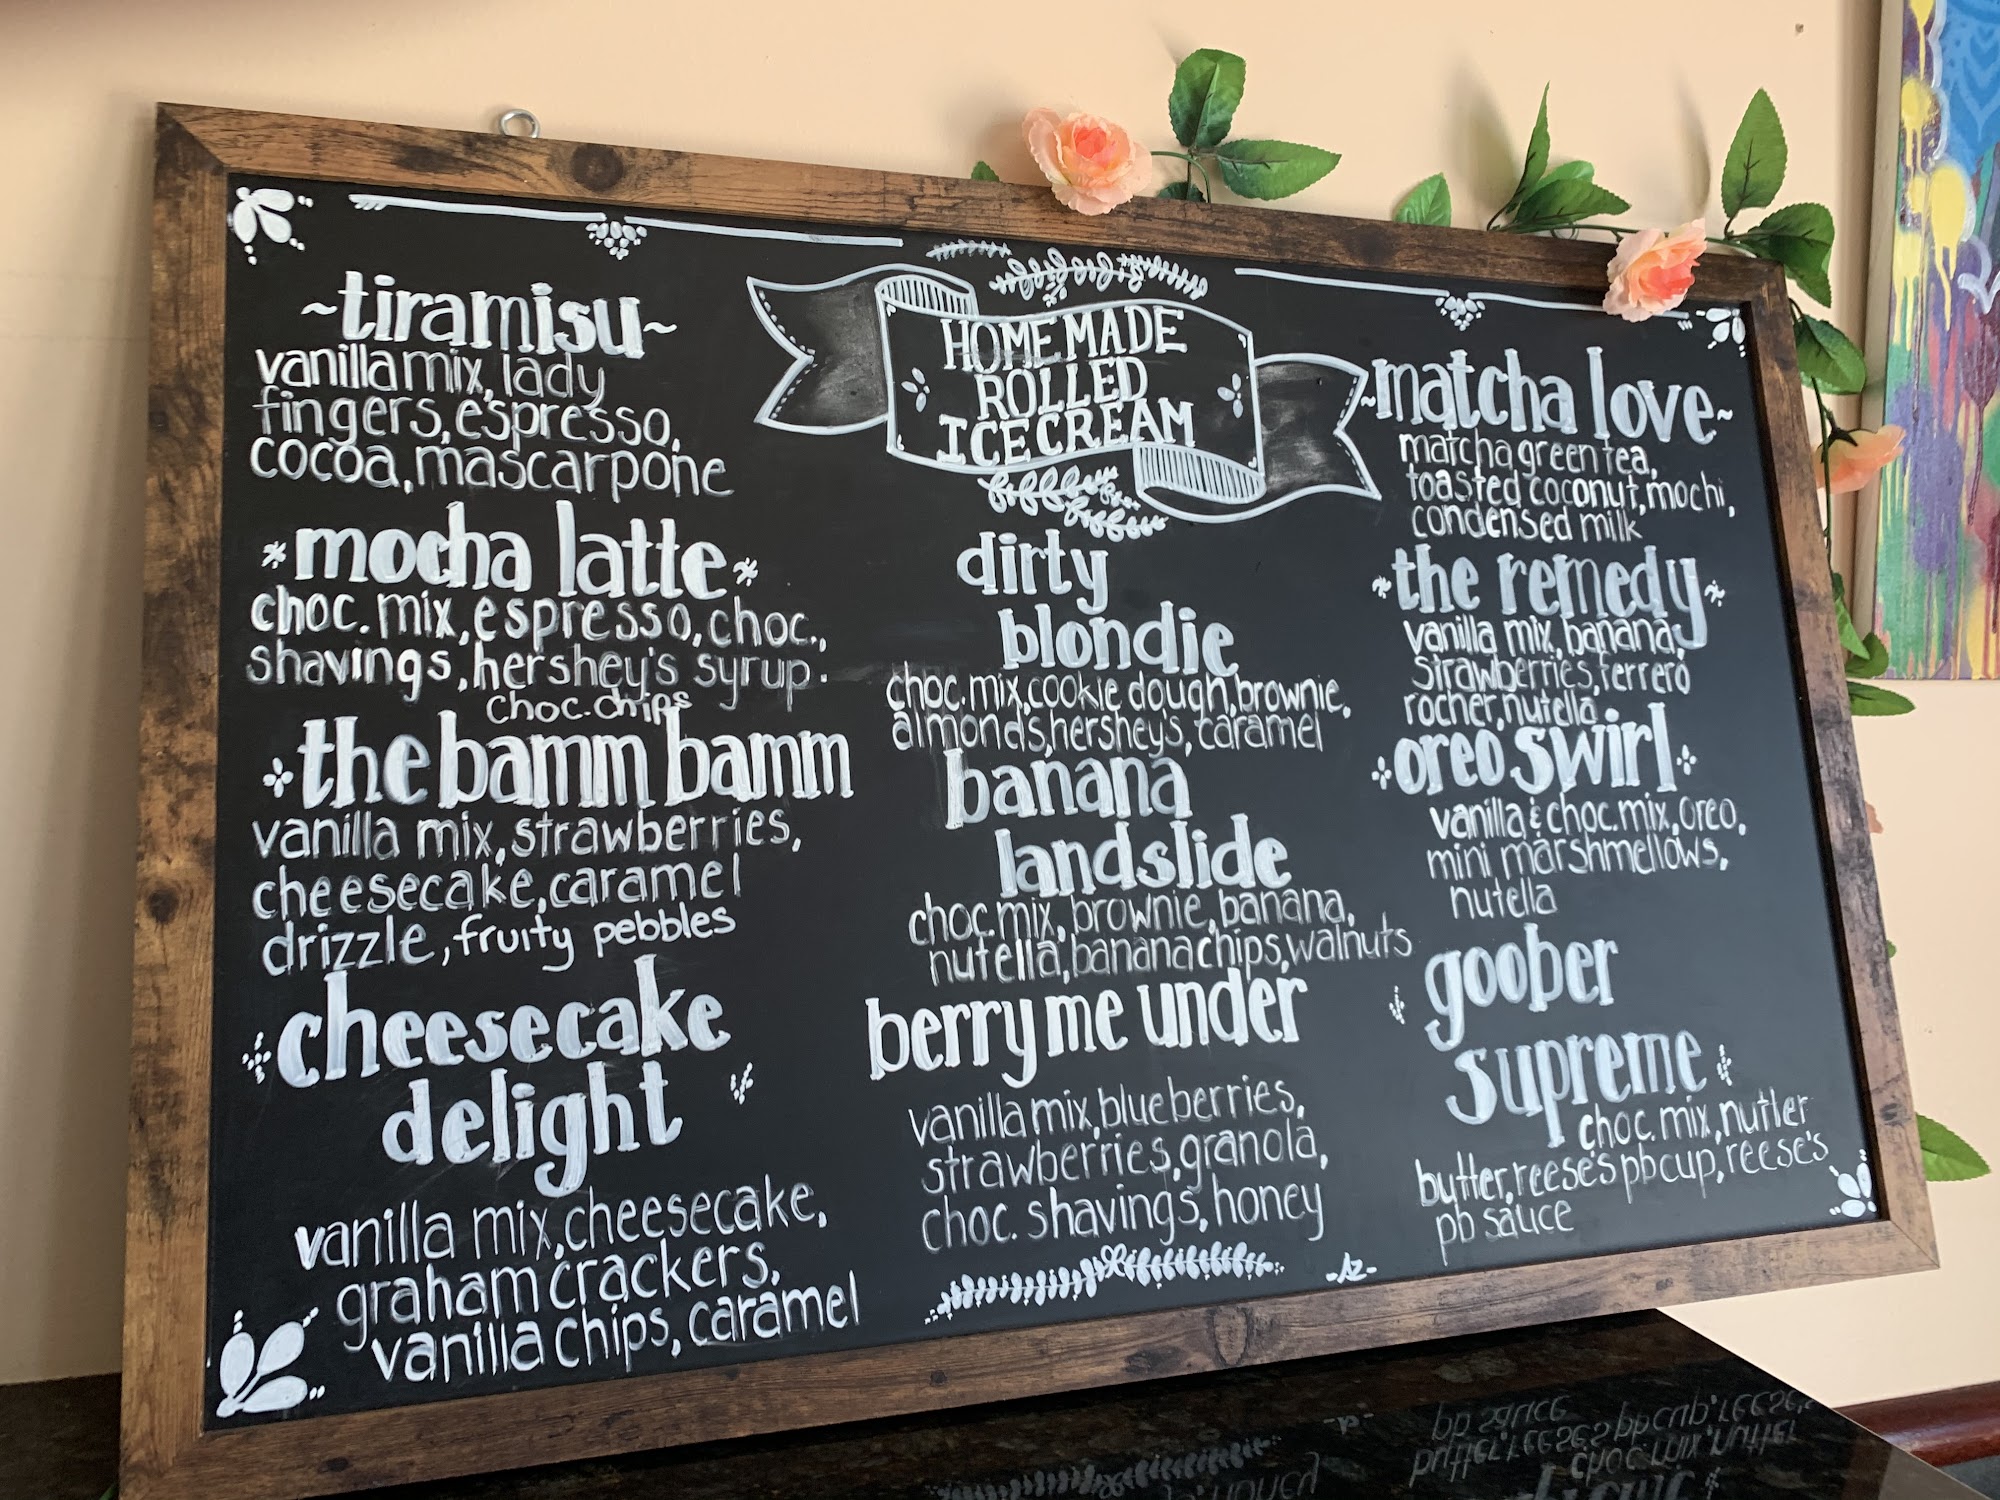 ~tiramisu~
vanilla mix, lady
fingers, espresso,
cocoa, mascarpone
mocha latte
choc. mix, espresso, choc.,
shavings, hershey's syrup.
choc. chips
the bamm bamm
vanilla mix, strawberries,
cheesecake, caramel
drizzle, fruity pebbles
cheesecake
delight
vanilla mix, cheesecake,
graham crackers,
vanilla chips, caramel
HOMEMADE
ROLLED
ICE CREAM
dirty
blondie
choc. mix, cookie dough, brownie,
almonds, hershey's, caramel
banana
landslide
choc. mix, brownie, banana,
nutella, banana chips, walnuts
berry me under
vanilla mix, blueberries,
strawberries, granola,
choc. shavings, honey
-AZ-
~matcha love~
matcha green tea,
toasted coconut, mochi,
condensed milk
the remedy
vanilla mix, banana,
strawberries, ferrero
rocher, nutella
oreo swirl
vanilla & choc. mix, oreo,
mini marshmellows,
nutella
goober
supreme
choc. mix, nutter
butter, reese's pb cup, reese's
pb sauce